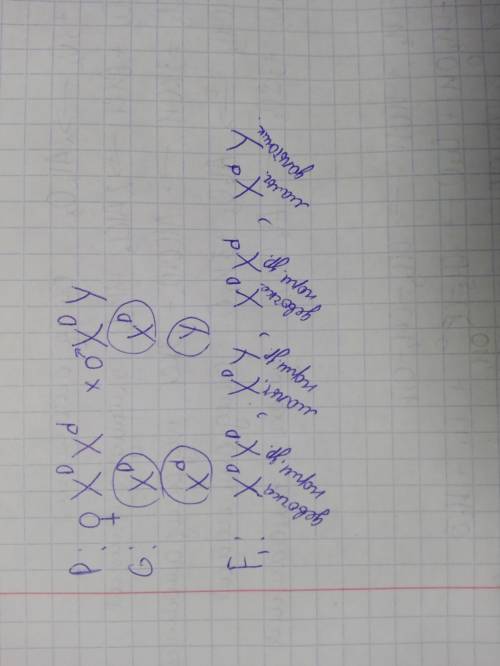 P: ♀ X^D X^d × ♂ X^D Y
G: X^D X^D
X^d Y
F₁: X^D X^D, X^D Y, X^D X^d, X^d Y
девочка, мальч., девочка, мальч.
норм. зр. норм. зр. норм. зр. дальтоник